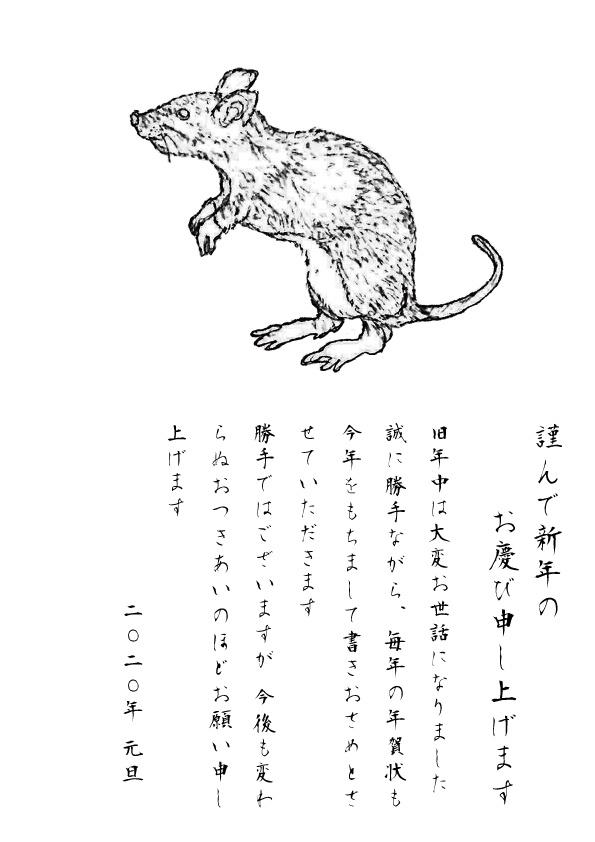 謹んで新年の
お慶び申し上げます
旧年中は大変お世話になりました
誠に勝手ながら、毎年の年賀状も
今年をもちまして書きおさめとさ
せていただきます
勝手ではございますが 今後も変わ
らぬおつきあいのほどお願い申し
上げます
二〇二〇年 元旦